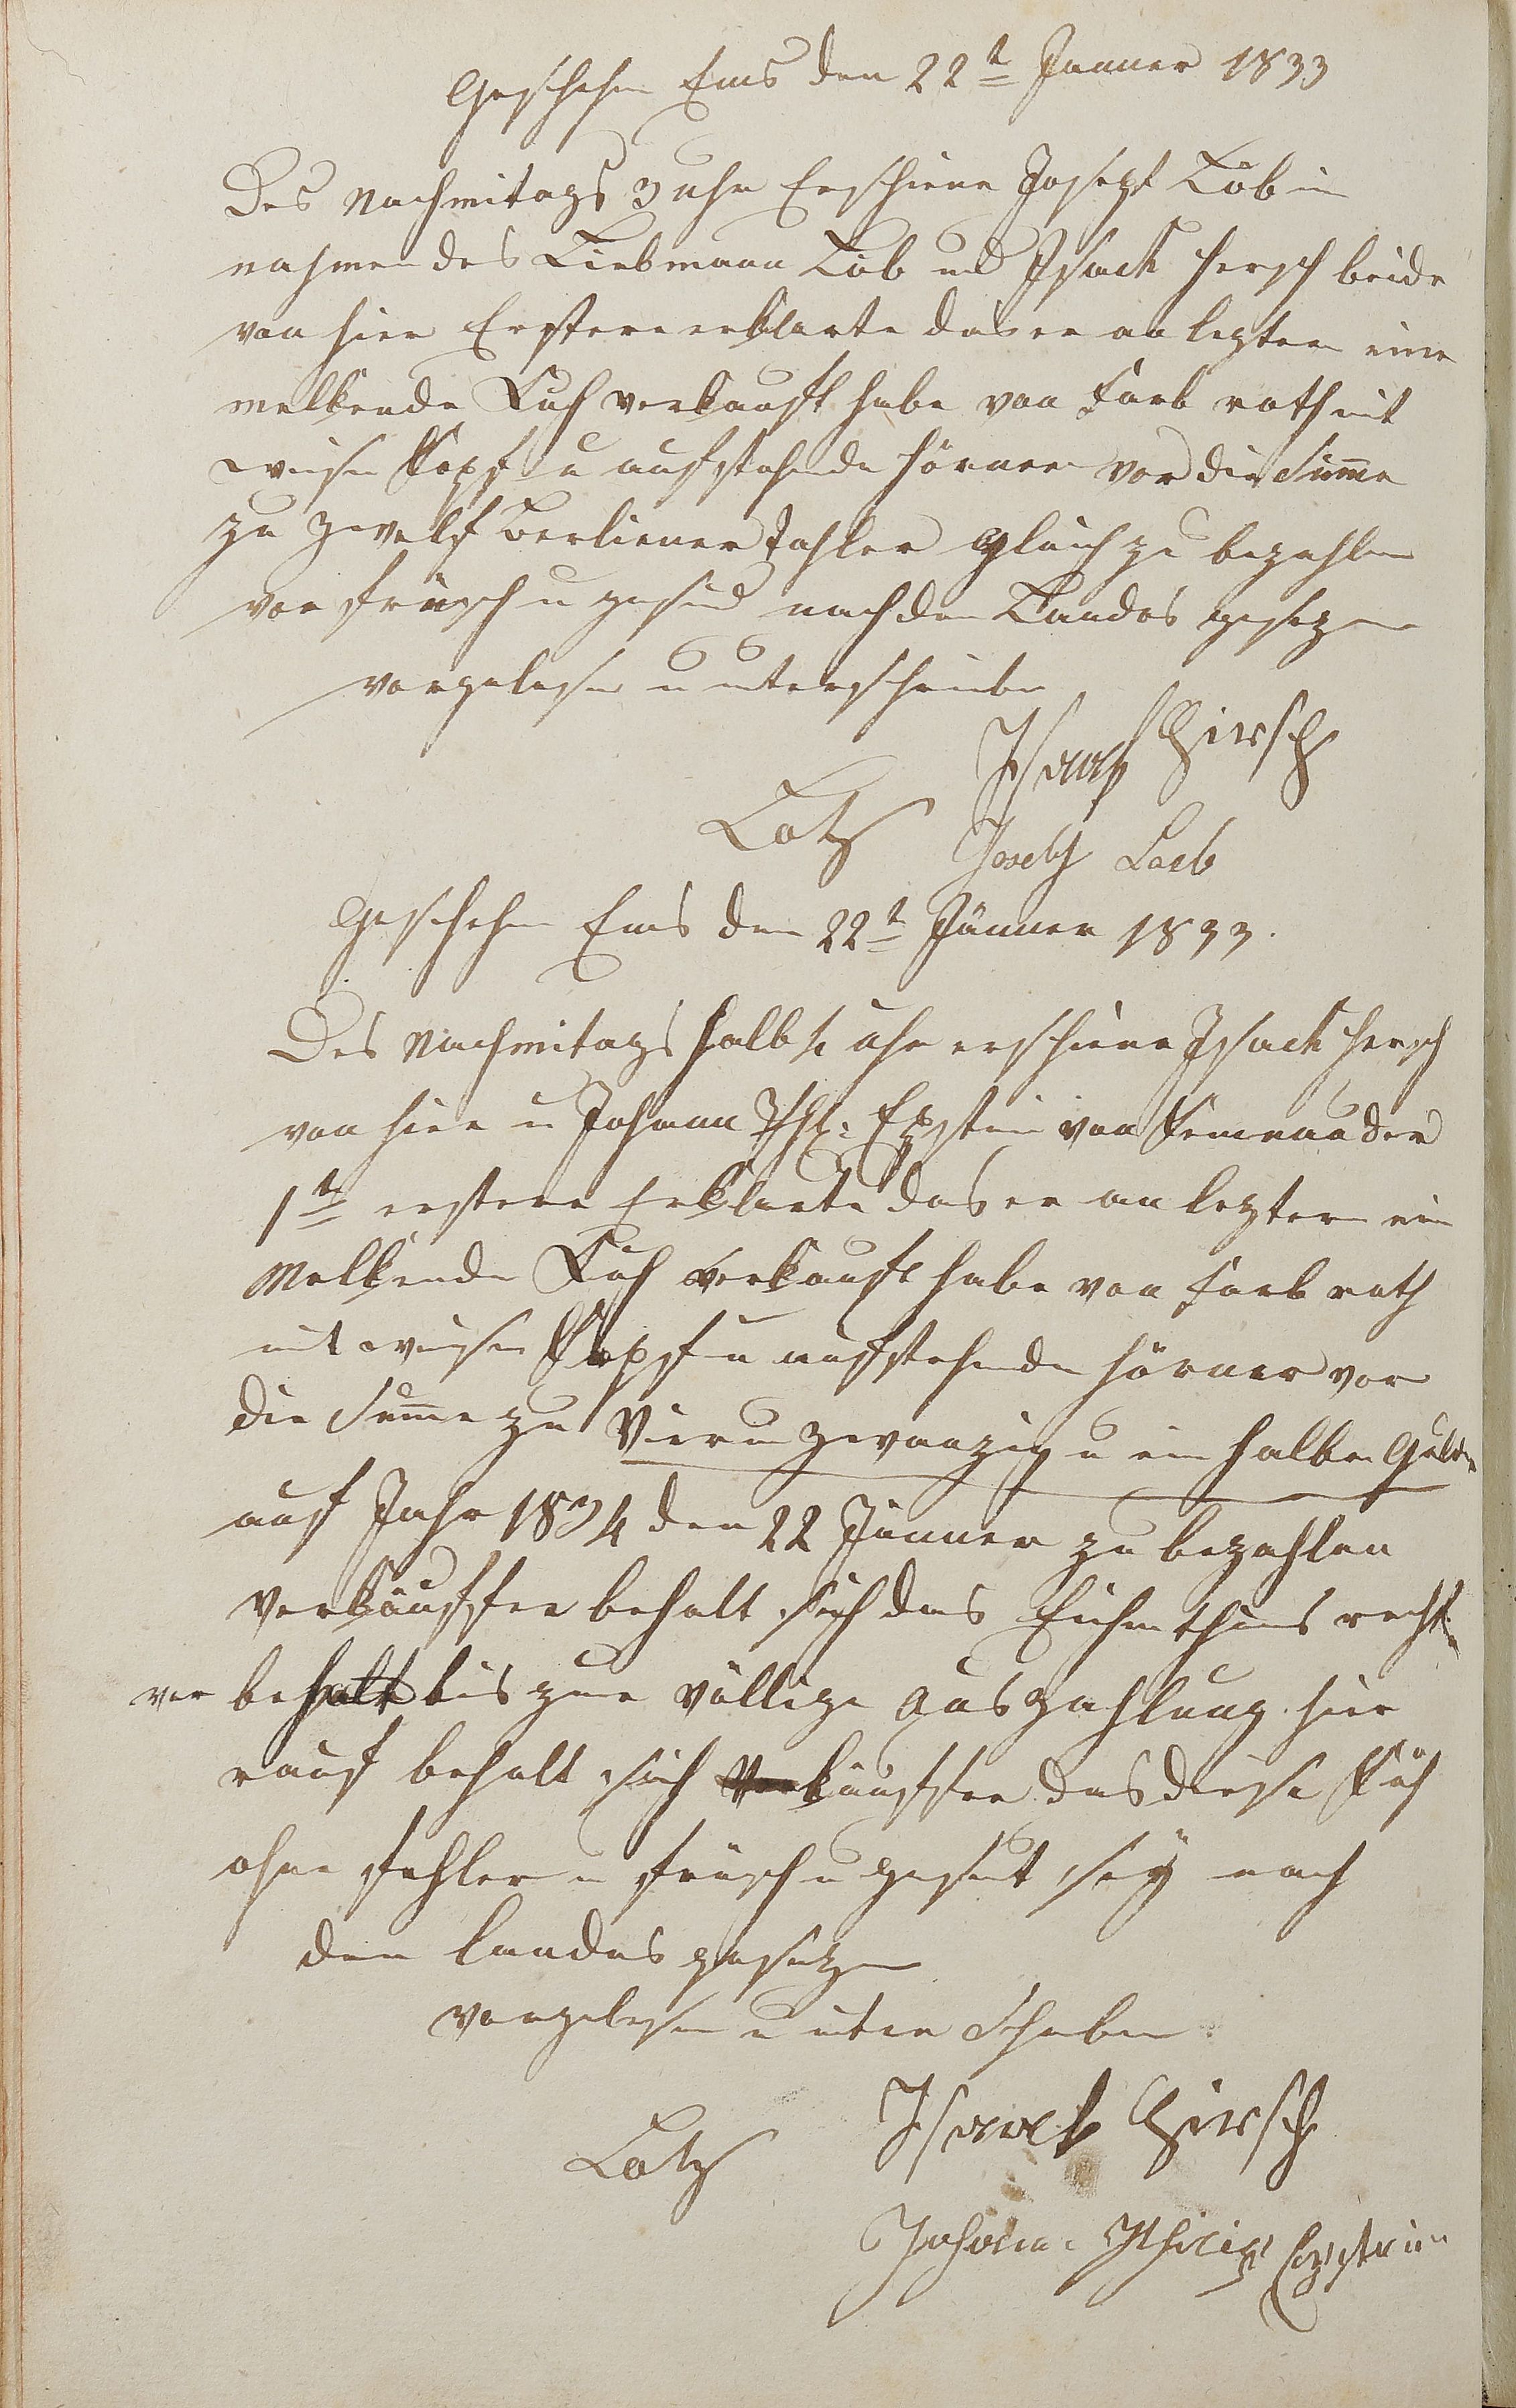 Geschehen Ems den 22t Janner 1833
Des Nachmitags 3 uhr Erschiene Joseph Löb in
nahmen des Liebmann Löb und Isack Hersch beide
von hier Erstere erklarte das er an leztern eine
melkende Kuh verkauft habe von Farb roth mit
weisen Kopf u aufstehende Hörner vor die Summe
zu zwelf Berliener Tahler gleich zu bezahlen
vor frisch u gesund nach den Landes gesezen
vorgelesen u unterschrieben
Isaack Hirsch
Lotz Joseph Loeb
Geschehen Ems den 22t Jänner 1833.
Des Nachmitags halb 4 uhr erschiene Isack Hersch
von hier u Johann Phl: Epstein von
1t erstere Erklarte das er an leztern ein
Melkende Kuh verkauft habe von Farb roth
mit weisen Kopf u aufstehende Hörner vor
die Summe zu Vier u zwanzig u ein halben Gulden
auf Jahr 1834 den 22 Jänner zu bezahlen
Verkäuffer behalt sich das Eichenthums recht
vor behalt bis zur völlige Auszahlung hier
rauf behalt sich käuffer das diese Kuh
ohne Fehler u frisch u gesunt sey nach
den Landes gesetzen
vorgelesen u unter Schrieben
Isaack Hirsch
Lotz
Johann Philip Epstein